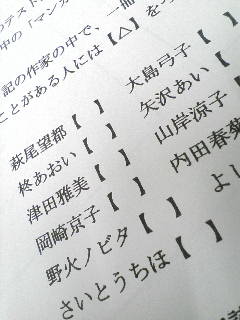 のテスト
中の「マンガ
記の作家の中で、一冊
ことがある人には【△】を
萩尾望都【 】 大島弓子【 】
柊あおい【 】 矢沢あい【
津田雅美【 】 山岸涼子【
岡崎京子【 】 内田春菊
野火ノビタ【 】 よし
さいとうちほ【 】